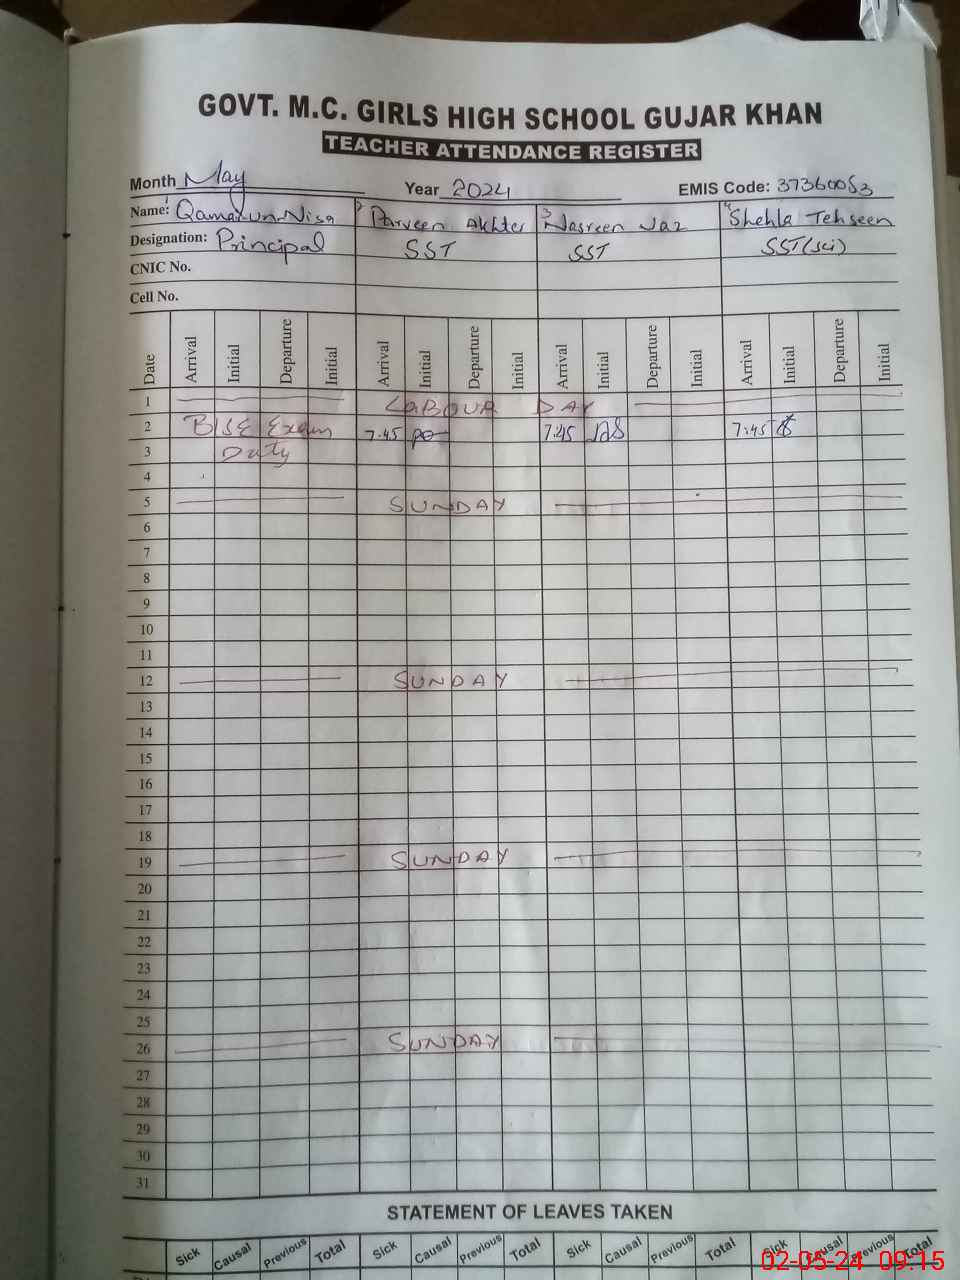 GOVT. M.C. GIRLS HIGH SCHOOL GUJAR KHAN
TEACHER ATTENDANCE REGISTER
Month May Year 2024 EMIS Code: 37360053
Name: 1 Qamar-un-Nisa 2 Parveen Akhter 3 Nasreen Naz 4 Shehla Tehseen
Designation: Principal SST SST SST (sci)
CNIC No.
Cell No.
Date Arrival Initial Departure Initial Arrival Initial Departure Initial Arrival Initial Departure Initial Arrival Initial Departure Initial
1 LABOUR DAY
2 BISE Exam 7:45 7:45 7:45
3 Duty
4
5 SUNDAY
6
7
8
9
10
11
12 SUNDAY
13
14
15
16
17
18
19 SUNDAY
20
21
22
23
24
25
26 SUNDAY
27
28
29
30
31
STATEMENT OF LEAVES TAKEN
Sick Causal Previous Total Sick Causal Previous Total Sick Causal Previous Total Sick Causal Previous Total
02-05-24 09:15